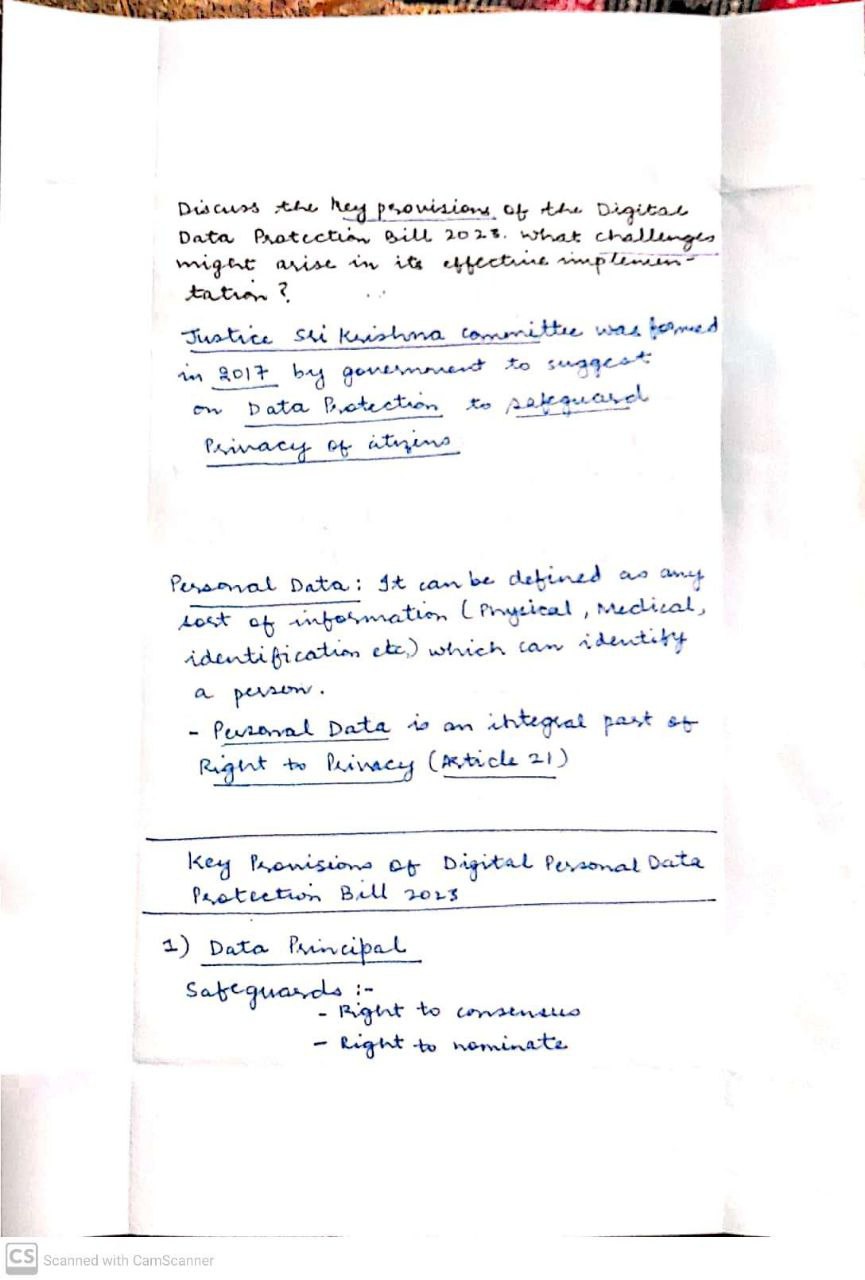 Discuss the key provisions of the Digital
Data Protection Bill 2023. What challenges
might arise in its effective implemen-
tation?
Justice Sri Krishna committee was formed
in 2017 by government to suggest
on Data Protection to safeguard
Privacy of citizens
Personal Data: It can be defined as any
sort of information (Physical, Medical,
identification etc.) which can identify
a person.
- Personal Data is an integral part of
Right to Privacy (Article 21)
Key Provisions of Digital Personal Data
Protection Bill 2023
1) Data Principal
Safeguards :-
- Right to consensus
- Right to nominate
CS Scanned with CamScanner